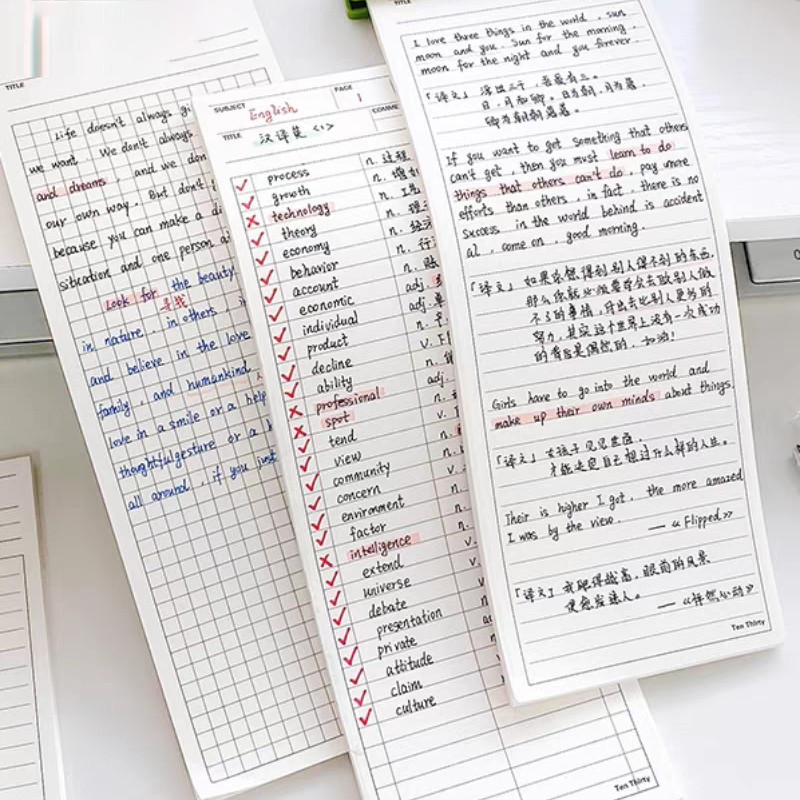 TITLE
Life doesn't always gi
we want. We don't always
and dreams, and we don
our own way. But don't
because you can make a di
situation and one person a
Look for the beauty
寻找
in nature, in others, i
and believe in the love
family, and humankind,
love in a smile or a help
thoughtful gesture or a h
all around, if you just
SUBJECT English
PAGE 1
TITLE 汉译英 <1>
COMME
process n. 过程
growth n. 增加
technology n. 工艺
theory n. 理
economy n. 经济
behavior n. 行
account n. 账
economic adj.
individual adj.
product n.
decline v.
ability n.
professional adj.
spot n.
tend v.
view n.
community n.
concern v.
environment n.
factor n.
intelligence n.
extend v.
universe n.
debate
presentation n.
private
attitude n.
claim
culture
Ten Thirty
TITLE
I love three things in the world, sun
moon and you. Sun for the morning,
moon for the night and you forever.
「译文」浮世三千，吾爱有三。
日，月和卿。日为朝，月为暮，
卿为朝朝暮暮。
If you want to get something that others
can't get, then you must learn to do
things that others can't do, pay more
efforts than others, in fact, there is no
success in the world behind is accident
al, come on, good morning.
「译文」如果你想得到别人得不到的东西，
那么你就必须要学会去做别人做
不了的事情，付出去比别人更多的
努力，其实这个世界上没有一次成功
的背后是偶然的，加油！
Girls have to go into the world and
make up their own minds about things.
「译文」女孩子见见世面，
才能决定自己想过什么样的人生。
Their is higher I got, the more amazed
I was by the view. —《Flipped》
「译文」我爬得越高，眼前的风景
便愈发迷人。 —《怦然心动》
Ten Thirty